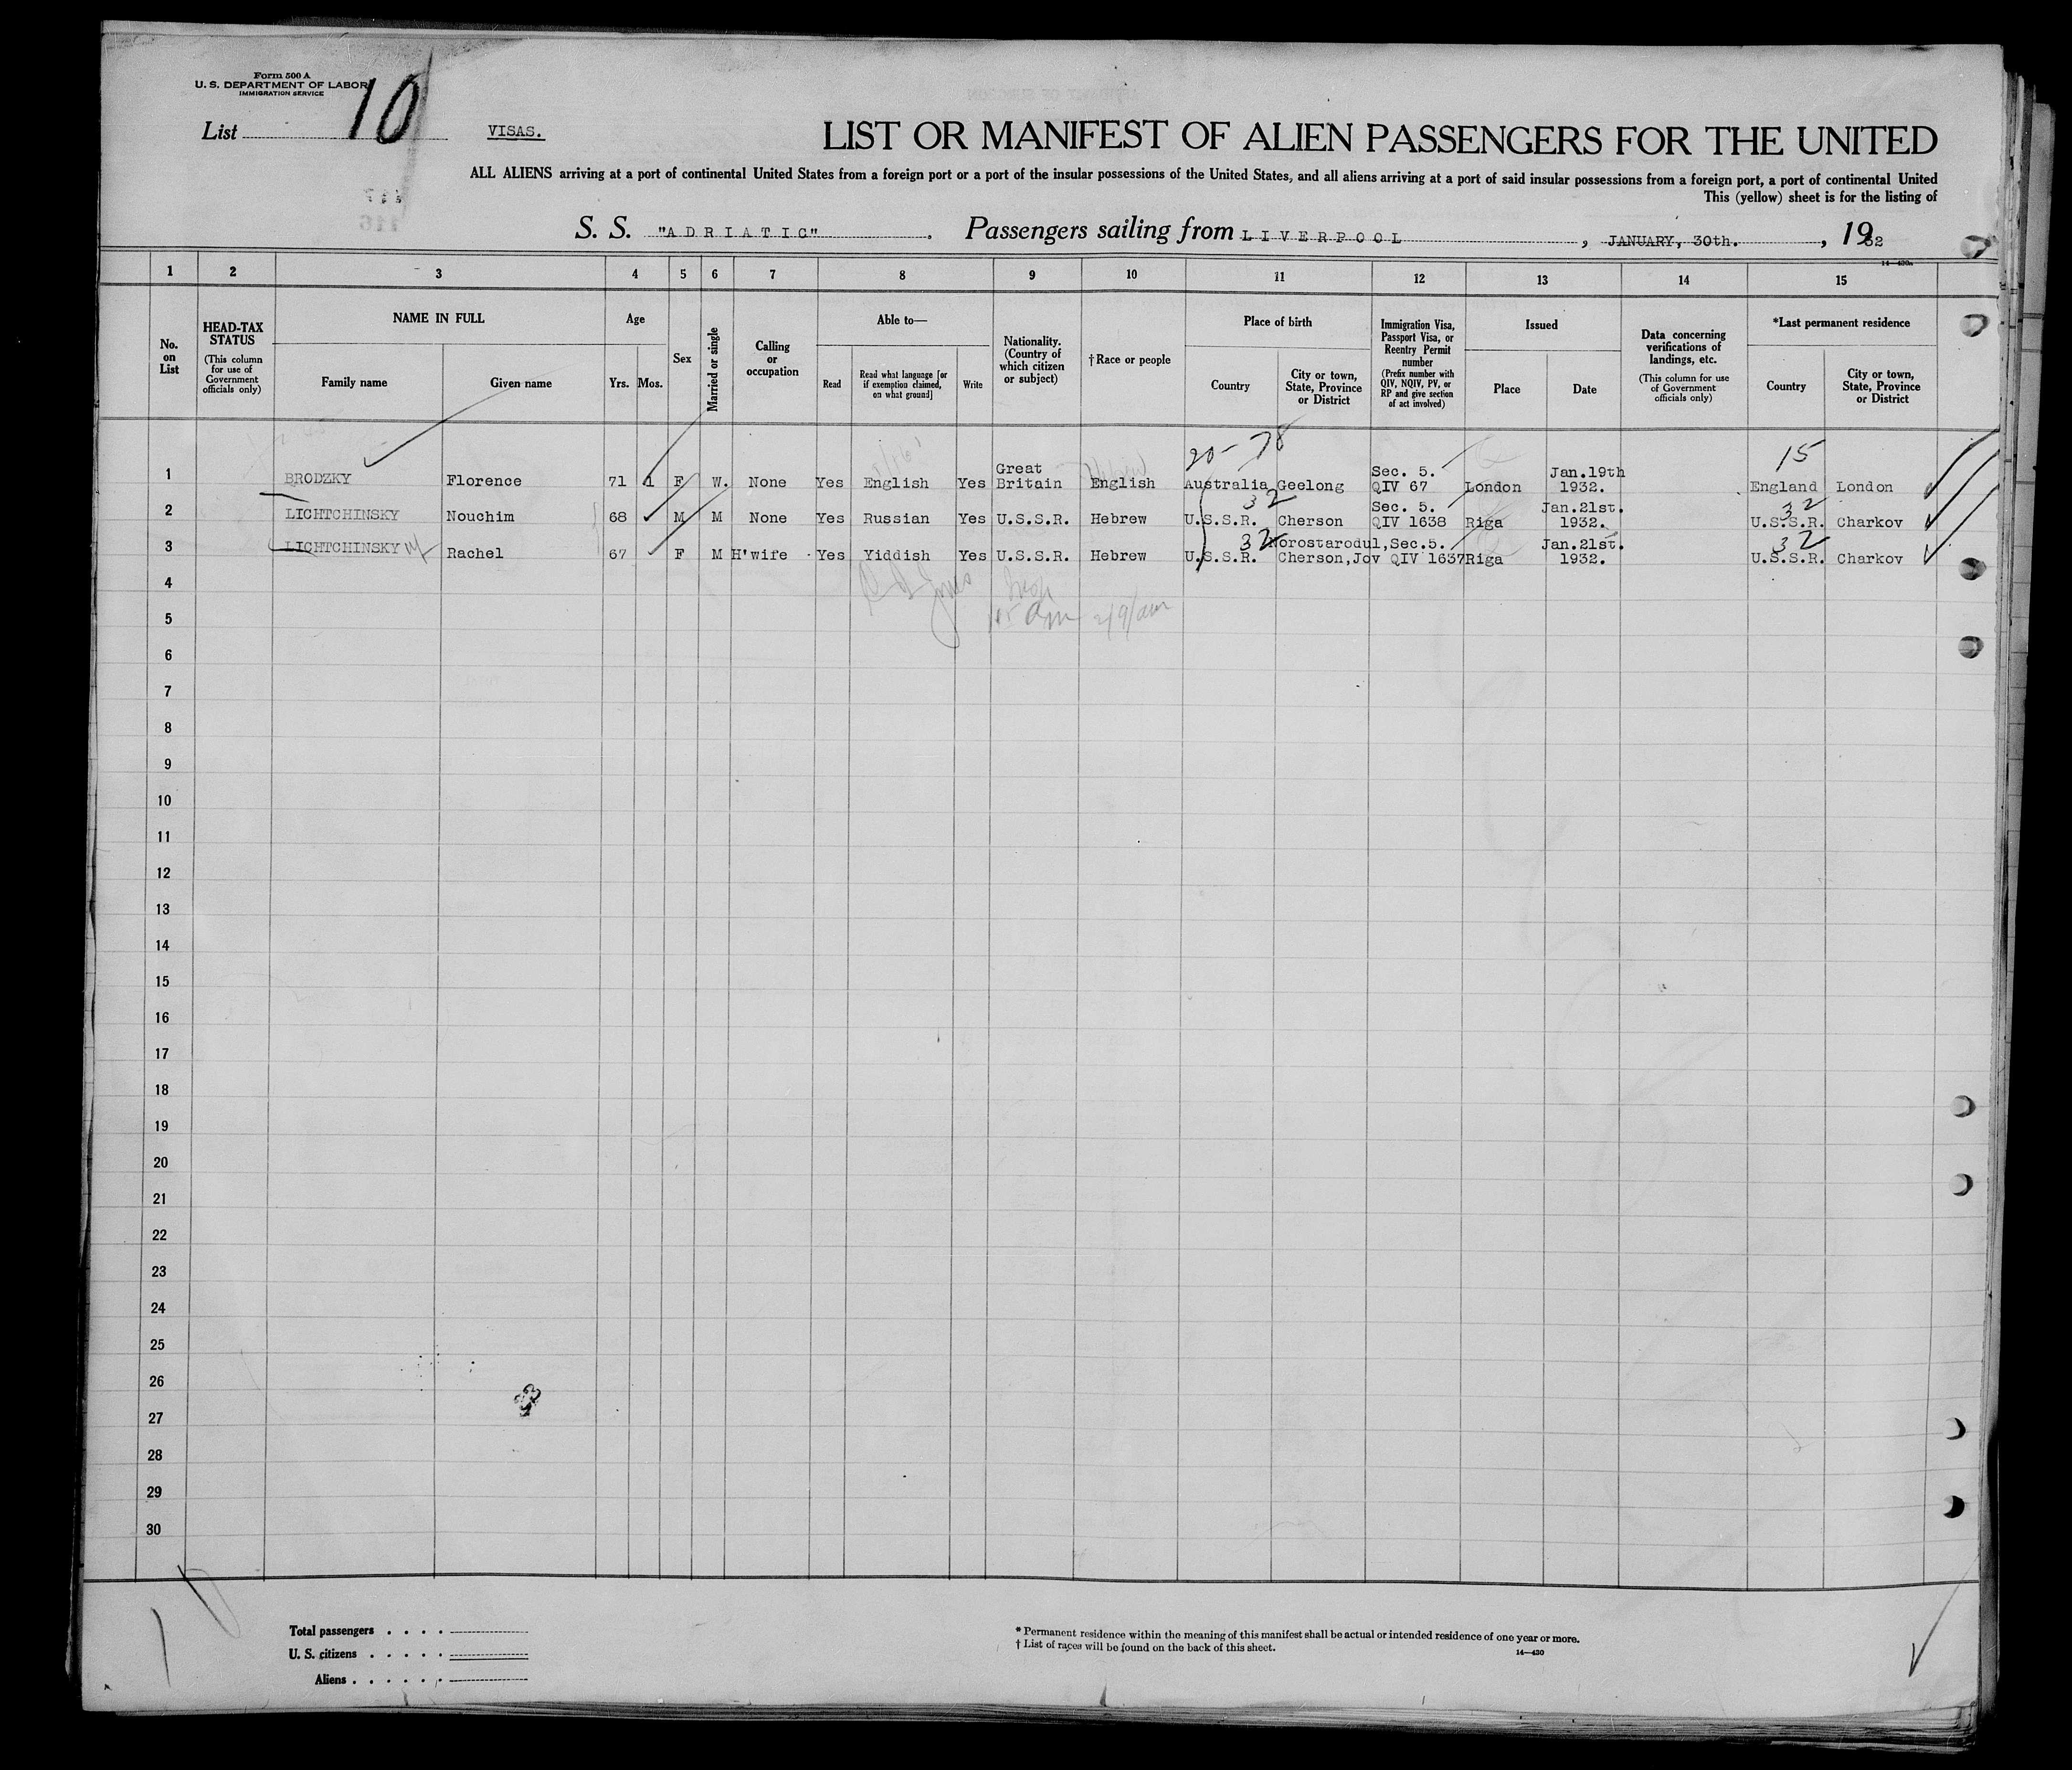 Form 500 A
U. S. DEPARTMENT OF LABOR
IMMIGRATION SERVICE
List 10
VISAS.
LIST OR MANIFEST OF ALIEN PASSENGERS FOR THE UNITED
ALL ALIENS arriving at a port of continental United States from a foreign port or a port of the insular possessions of the United States, and all aliens arriving at a port of said insular possessions from a foreign port, a port of continental United
This (yellow) sheet is for the listing of
S. S. "ADRIATIC" Passengers sailing from LIVERPOOL, JANUARY, 30th., 1932
14—430a
1 2 3 4 5 6 7 8 9 10 11 12 13 14 15
No. on List
HEAD-TAX STATUS
(This column for use of Government officials only)
NAME IN FULL
Family name Given name
Age
Yrs. Mos.
Sex
Married or single
Calling or occupation
Able to—
Read
Read what language [or if exemption claimed, on what ground]
Write
Nationality. (Country of which citizen or subject)
†Race or people
Place of birth
Country
City or town, State, Province or District
Immigration Visa, Passport Visa, or Reentry Permit number
(Prefix number with QIV, NQIV, PV, or RP and give section of act involved)
Issued
Place Date
Data concerning verifications of landings, etc.
(This column for use of Government officials only)
*Last permanent residence
Country
City or town, State, Province or District
20-78 15
1 BRODZKY Florence 71 1 F W. None Yes English Yes Great Britain English Australia Geelong Sec. 5. QIV 67 London Jan.19th 1932. England London
32 32
2 LICHTCHINSKY Nouchim 68 M M None Yes Russian Yes U.S.S.R. Hebrew U.S.S.R. Cherson Sec. 5. QIV 1638 Riga Jan.21st. 1932. U.S.S.R. Charkov
32 32
3 LICHTCHINSKY Rachel 67 F M H'wife Yes Yiddish Yes U.S.S.R. Hebrew U.S.S.R. Norostarodul, Cherson,Jov Sec.5. QIV 1637 Riga Jan.21st. 1932. U.S.S.R. Charkov
4
5
6
7
8
9
10
11
12
13
14
15
16
17
18
19
20
21
22
23
24
25
26
27
28
29
30
Total passengers
U. S. citizens
Aliens
* Permanent residence within the meaning of this manifest shall be actual or intended residence of one year or more.
† List of races will be found on the back of this sheet.
14—430